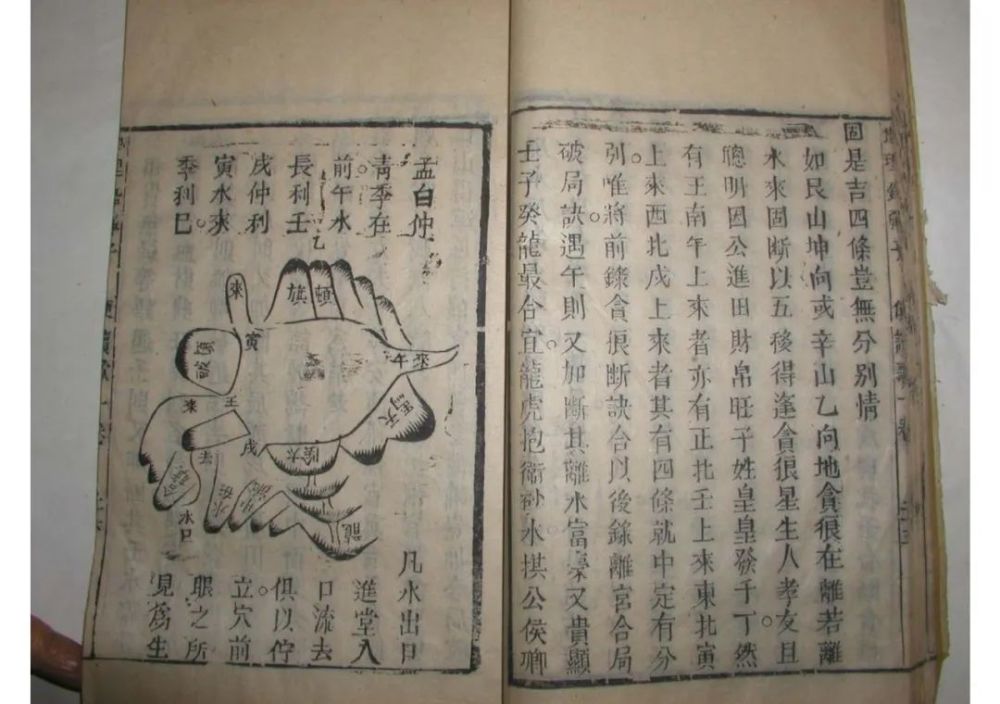 固是吉四條豈無分別情
如艮山坤向或辛山乙向地貪狠在離若離
水來固斷以五後得逢貪狠星生人孝友且
聰明因公進田財帛旺子姓皇皇發千丁然
有王南午上來者亦有正北壬上來東北寅
上來西北戌上來者其有四條就中定有分
別唯將前錄貪狠斷訣合以後錄離宮合局
破局訣遇午則又加斷其離水富豪又貴顯
壬子癸龍最合宜龍虎抱衛砂水拱公侯卿
孟白仲
靑季在
前午水
長利壬
戌仲利
寅水來
季利巳
乙
來
旗
頓
寅
午
來
壬
來
天
戌
陰
龍
水口
凡水出口
進堂入
口流去
俱以佇
立穴前
眼之所
見爲生